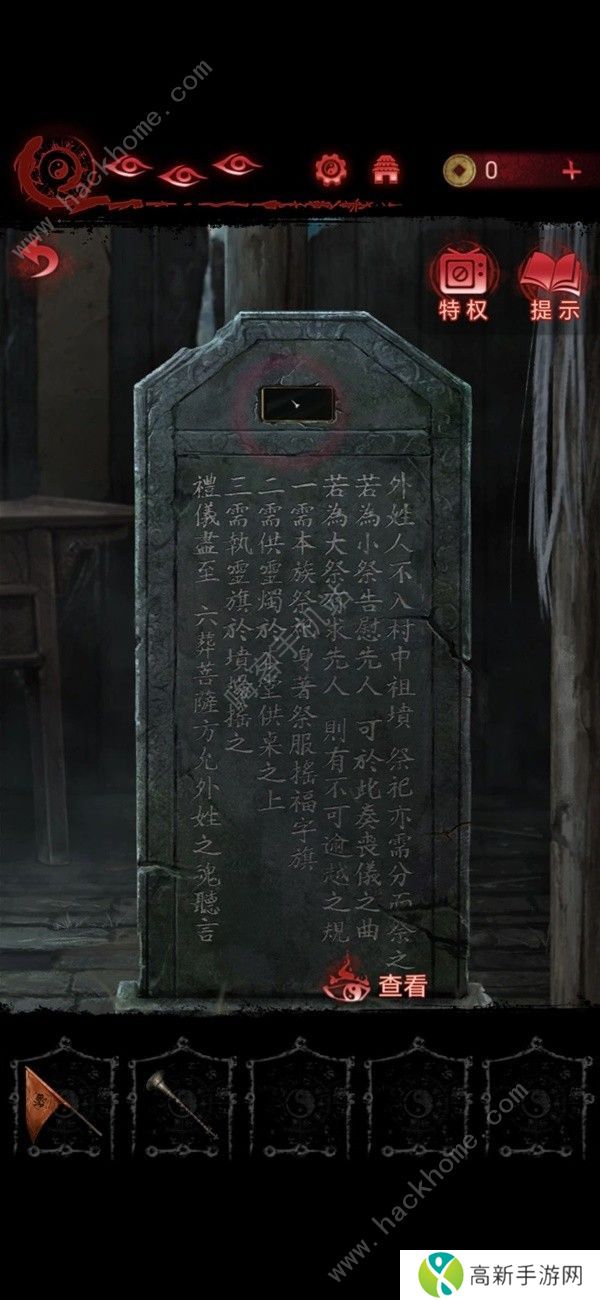 www.hackhome.com
0
特权
提示
外姓人不入村中祖墳 祭祀亦需分而祭之
若為小祭告慰先人 可於此奏喪儀之曲
若為大祭求先人 則有不可逾越之規
一需本族祭祀身著祭服搖福字旗
二需供靈燭於堂供桌之上
三需執靈旗於墳搖之
禮儀盡至 六葬菩薩方允外姓之魂聽言
查看
www.hackhome.com
高新手游网